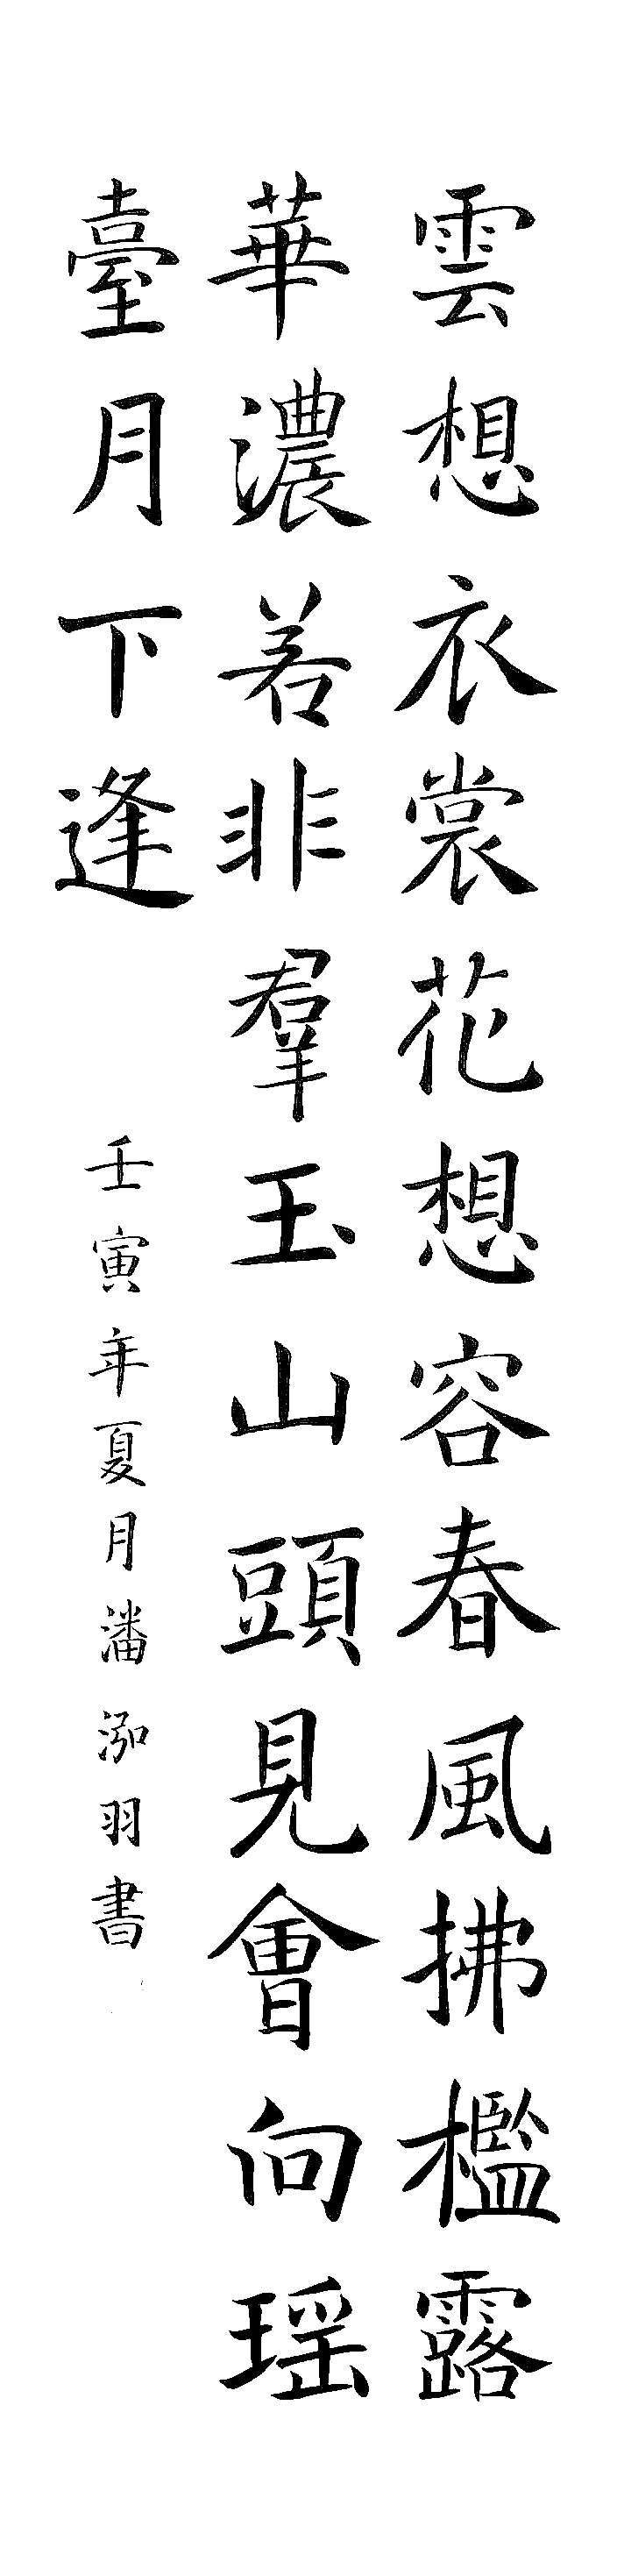 雲想衣裳花想容春風拂檻露
華濃若非羣玉山頭見會向瑶
臺月下逢
壬寅年夏月潘泓羽書